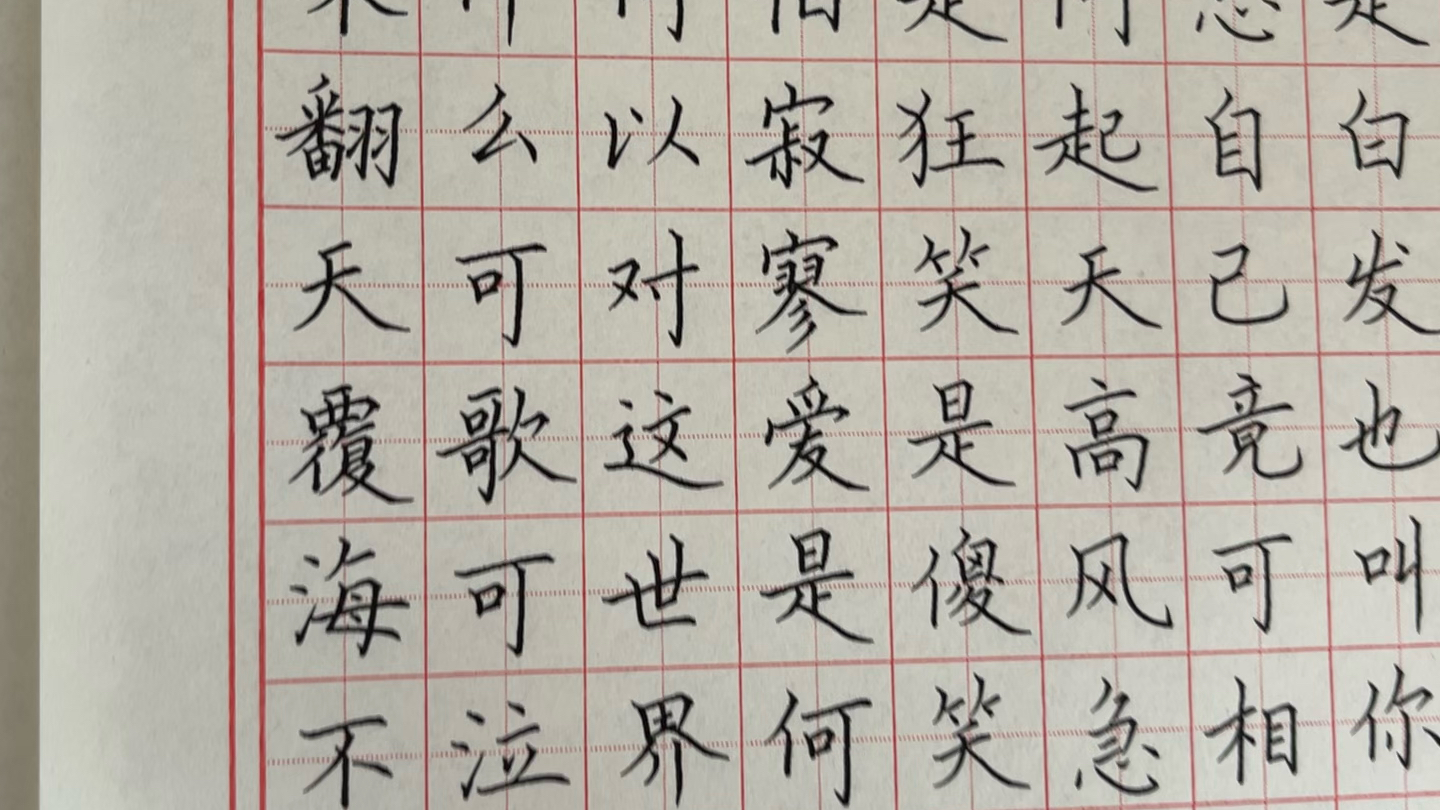 白发也叫你
自己竟可相
起天高风急
狂笑是傻笑
寂寥爱是何
以对这世界
么可歌可泣
翻天覆海不